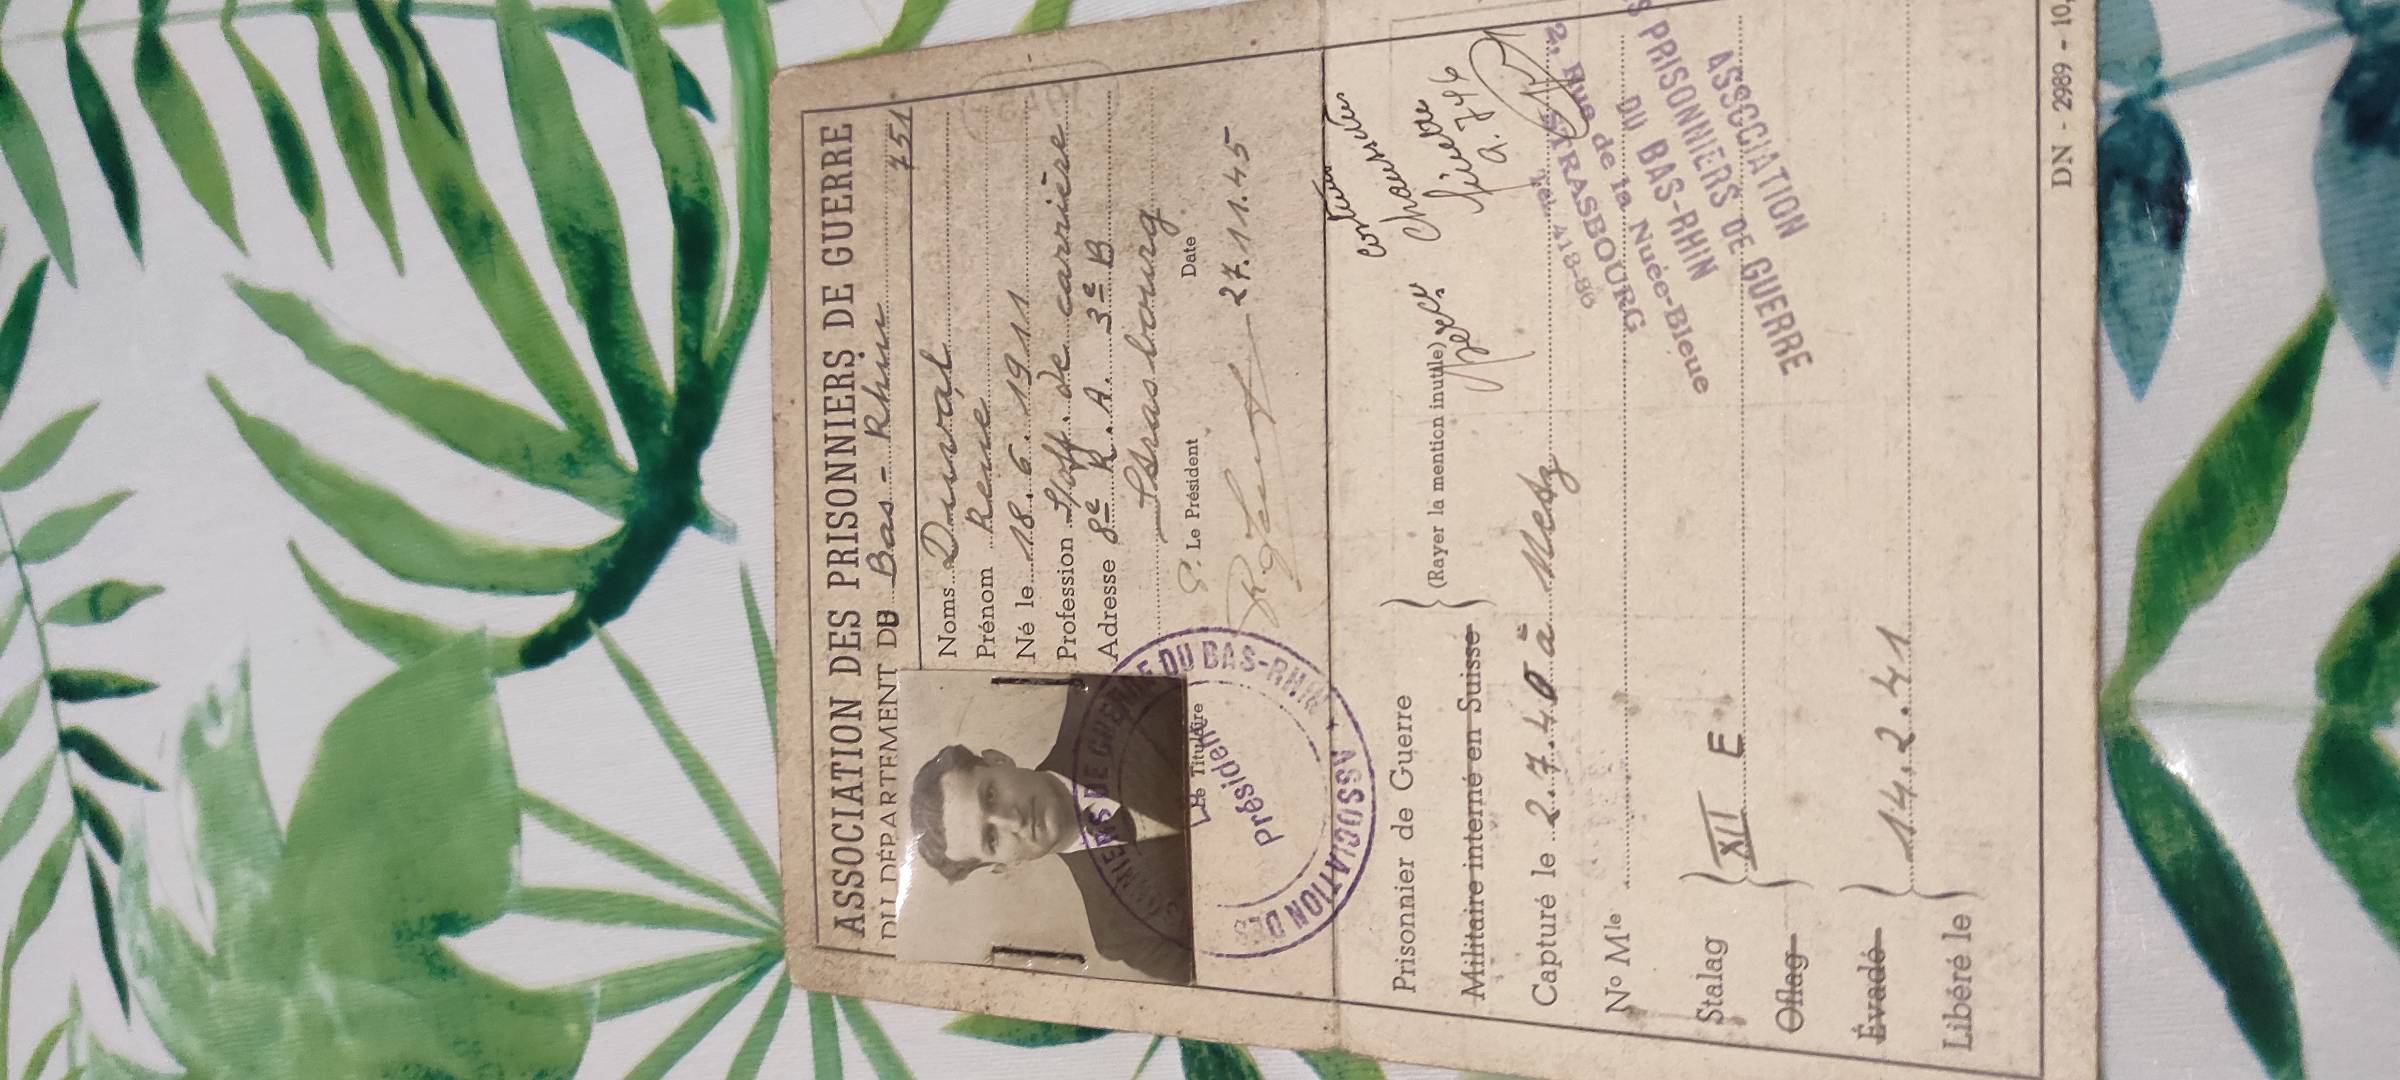 ASSOCIATION DES PRISONNIERS DE GUERRE
DU DÉPARTEMENT DU Bas-Rhin 751
Noms Duval
Prénom René
Né le 18.6.1911
Profession S/off. de carrière
Adresse 8e R.A. 3e B
Strasbourg
Le Titulaire
P. Le Président
Date
27.11.45
ASSOCIATION DES PRISONNIERS DE GUERRE DU BAS-RHIN
Président
Prisonnier de Guerre
Militaire interné en Suisse
(Rayer la mention inutile)
perçu
Chaussures
Capturé le 2.7.40 à Metz
No Mle
Stalag
XII E
Oflag
Évadé
Libéré le
14.2.41
ASSOCIATION
PRISONNIERS DE GUERRE
DU BAS-RHIN
2, Rue de la Nuée-Bleue
STRASBOURG
Tél. 413-86
DN - 2989 - 10,